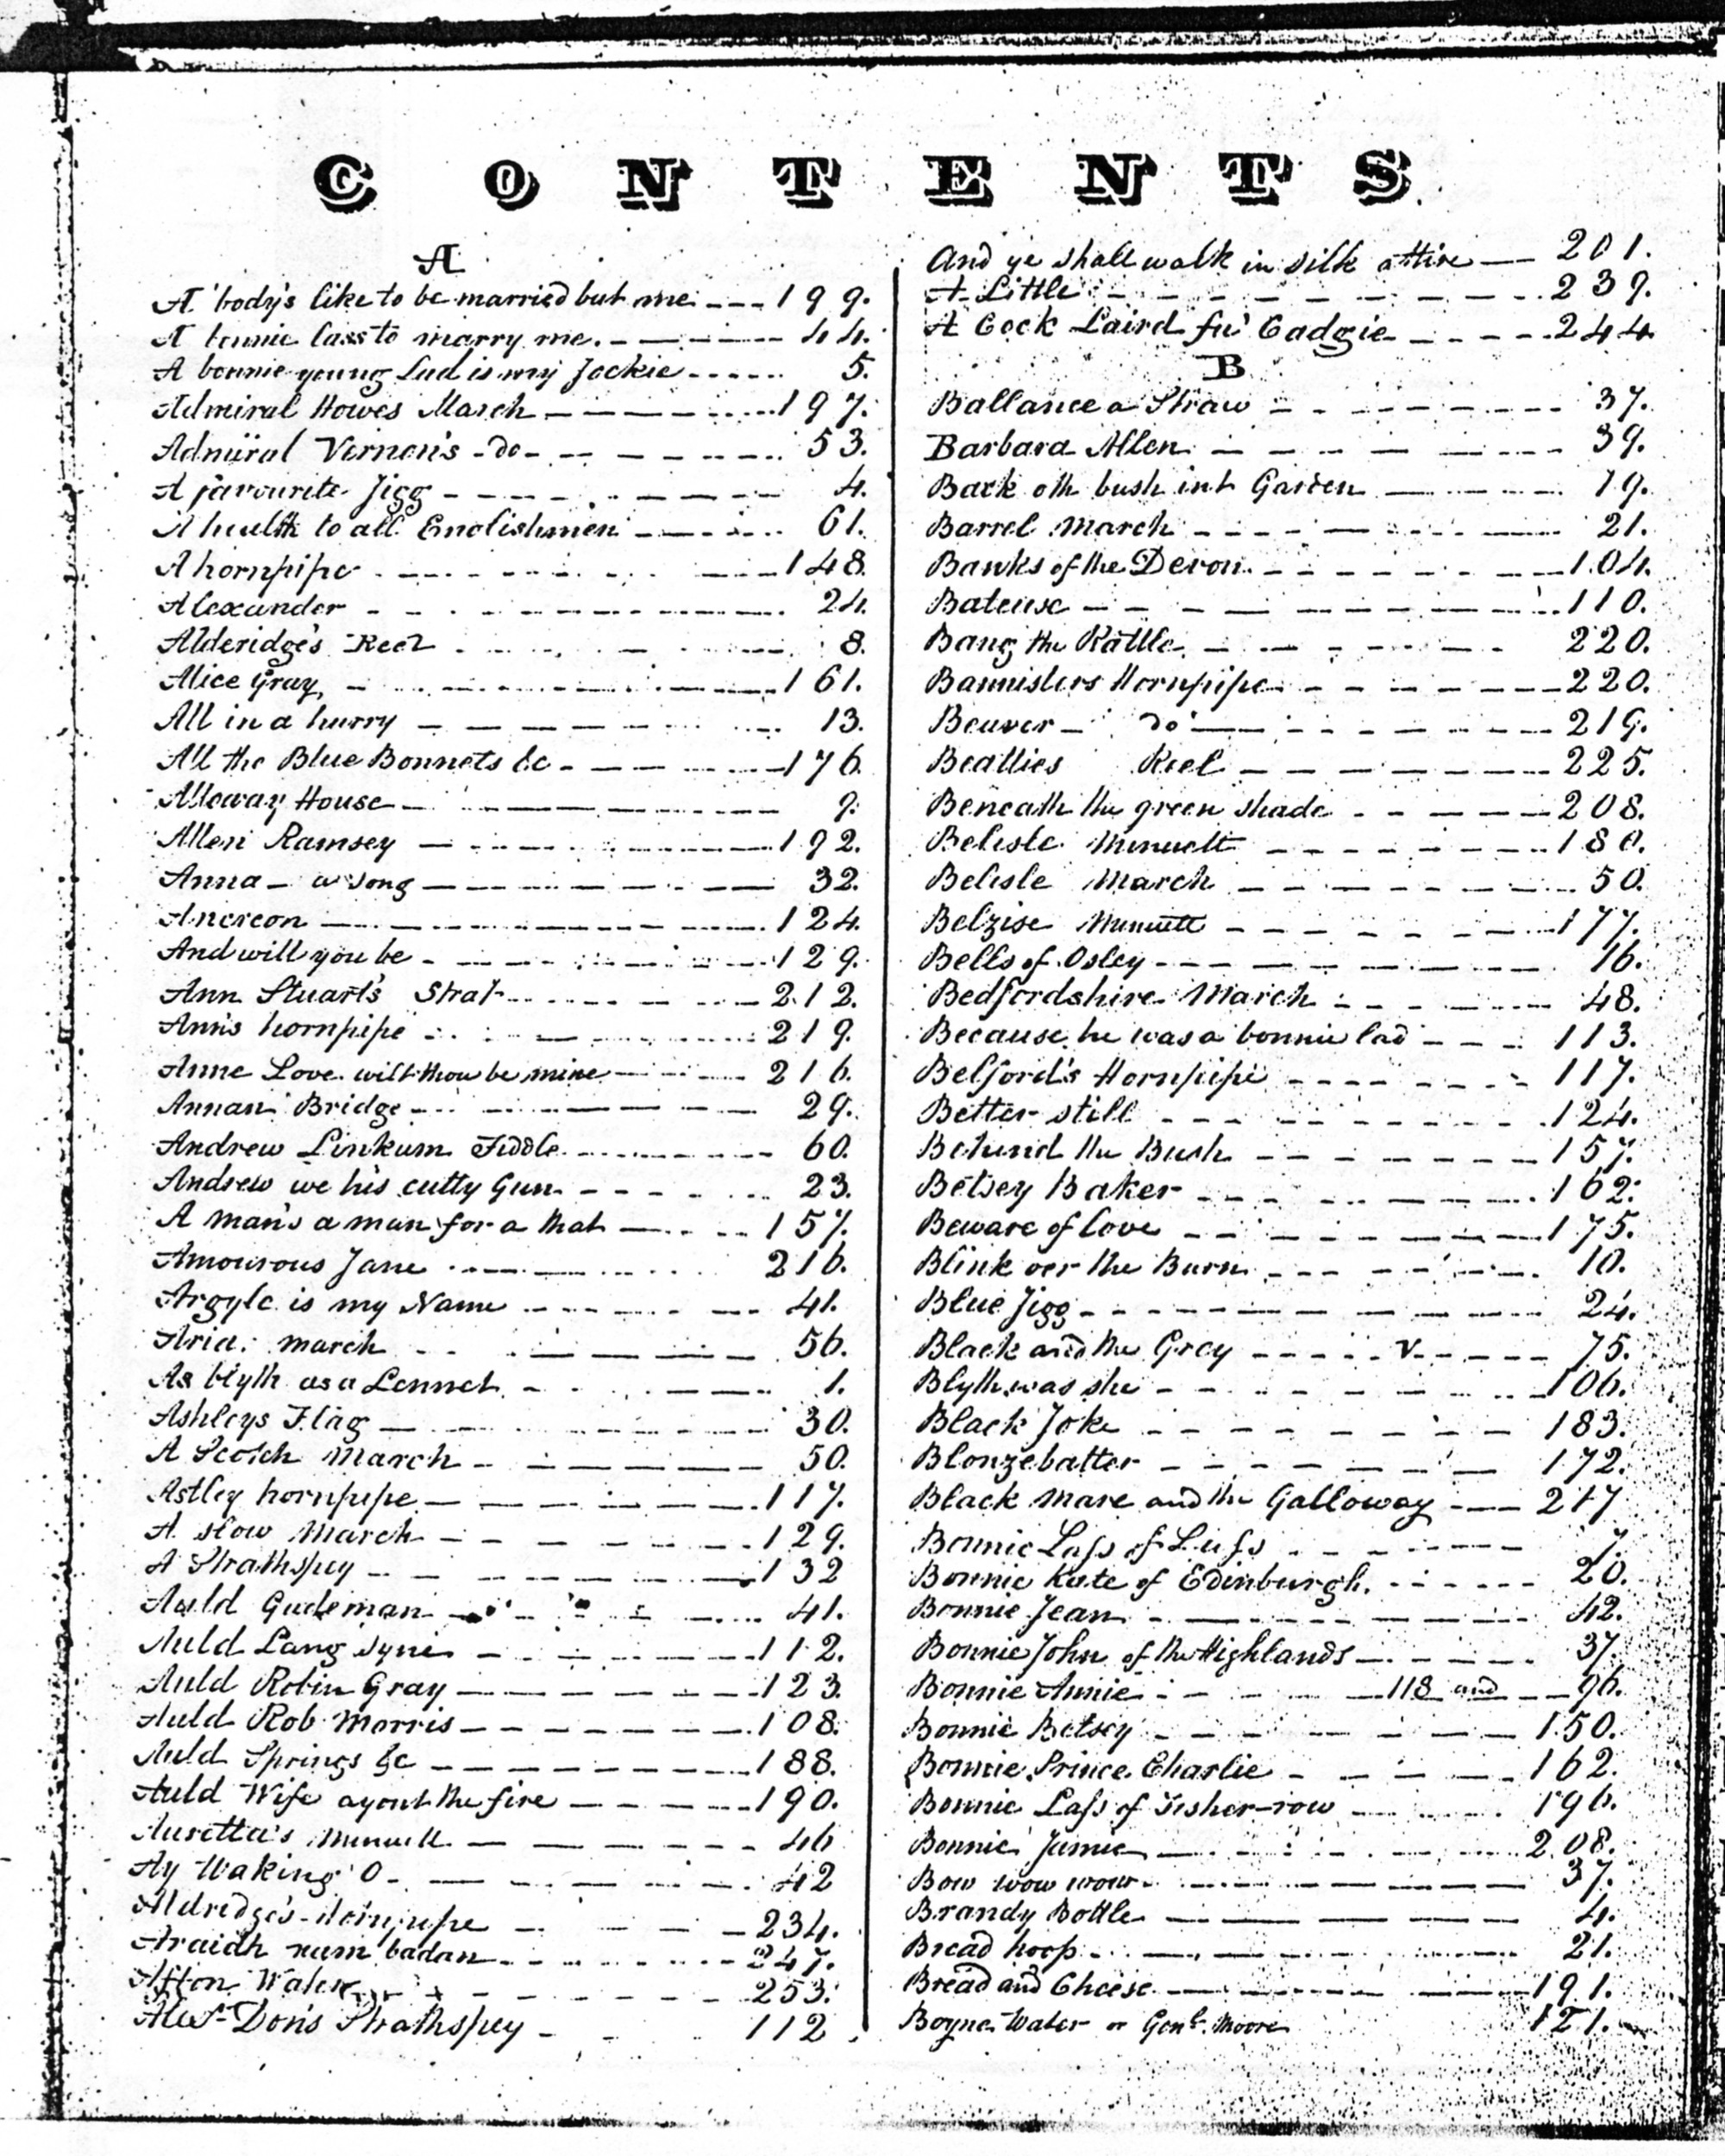 CONTENTS
A
A 'body's like to be married but me 199.
A bonnie lass to marry me. 44.
A bonnie young Lad is my Jockie 5.
Admiral Howes March 197.
Admiral Vernon's do 53.
A favourite Jigg 4.
A health to all Englishmen 61.
A hornpipe 148.
Alexander 24.
Alderidge's Reel 8.
Alice Gray, 161.
All in a hurry 13.
All the Blue Bonnets &c 176.
Alloway House 9.
Allen Ramsey 192.
Anna - a song 32.
Anereon 124.
And will you be 129.
Ann Stuart's Strat 212.
Ann's hornpipe 219.
Anne Love wilt thou be mine 216.
Annan Bridge 29.
Andrew Linkum Fiddle 60.
Andrew we his cutty Gun 23.
A man's a man for a that 157.
Amourous Jane 216.
Argyle is my Name 41.
Aria: march 56.
As blyth as a Lennet 1.
Ashleys Flag 30.
A Scotch March 50.
Astley hornpipe 117.
A slow March 129.
A Strathspey 132
Auld Gudeman 41.
Auld Lang Syne 112.
Auld Robin Gray 123.
Auld Rob Morris 108.
Auld Springs &c 188.
Auld Wife ayont the fire 190.
Auretta's Minuett 46
Ay Waking O 42
Aldredge's Hornpipe 234.
Araidh nam badan 247.
Afton Water 253.
Alexr Don's Strathspey 112
And ye shall walk in silk attire 201.
A Little 239.
A Cock Laird fu' Cadgie 244
B
Ballance a Straw 37.
Barbara Allen 39.
Back oth bush int Garden 19.
Barrel March 21.
Banks of the Devon 104.
Bateuse 110.
Bang the Rattle 220.
Bannisters Hornpipe 220.
Beaver do 219.
Beatties Reel 225.
Beneath the green shade 208.
Belisle Minuett 180.
Belisle March 50.
Belzise Minuett 177.
Bells of Osley 16.
Bedfordshire March 48.
Because he was a bonnie lad 113.
Belford's Hornpipe 117.
Better still 124.
Behind the Bush 157.
Betsey Baker 162.
Beware of love 175.
Blink oer the Burn 10.
Blue Jigg 24.
Black and the Grey v 75.
Blyth was she 106.
Black Joke 183.
Blonzebatter 172.
Black Mare and the Galloway 217
Bonnie Lass of Luss 7.
Bonnie Kate of Edinburgh. 20.
Bonnie Jean 42.
Bonnie John of the Highlands 37
Bonnie Annie 118 and 96.
Bonnie Betsey 150.
Bonnie Prince Charlie 162.
Bonnie Lass of Fisher-row 196.
Bonnie Jamie 208.
Bow wow wow 37.
Brandy Bottle 4.
Bread hoop 21.
Bread and Cheese 191.
Boyne Water or Genl. Moore 121.